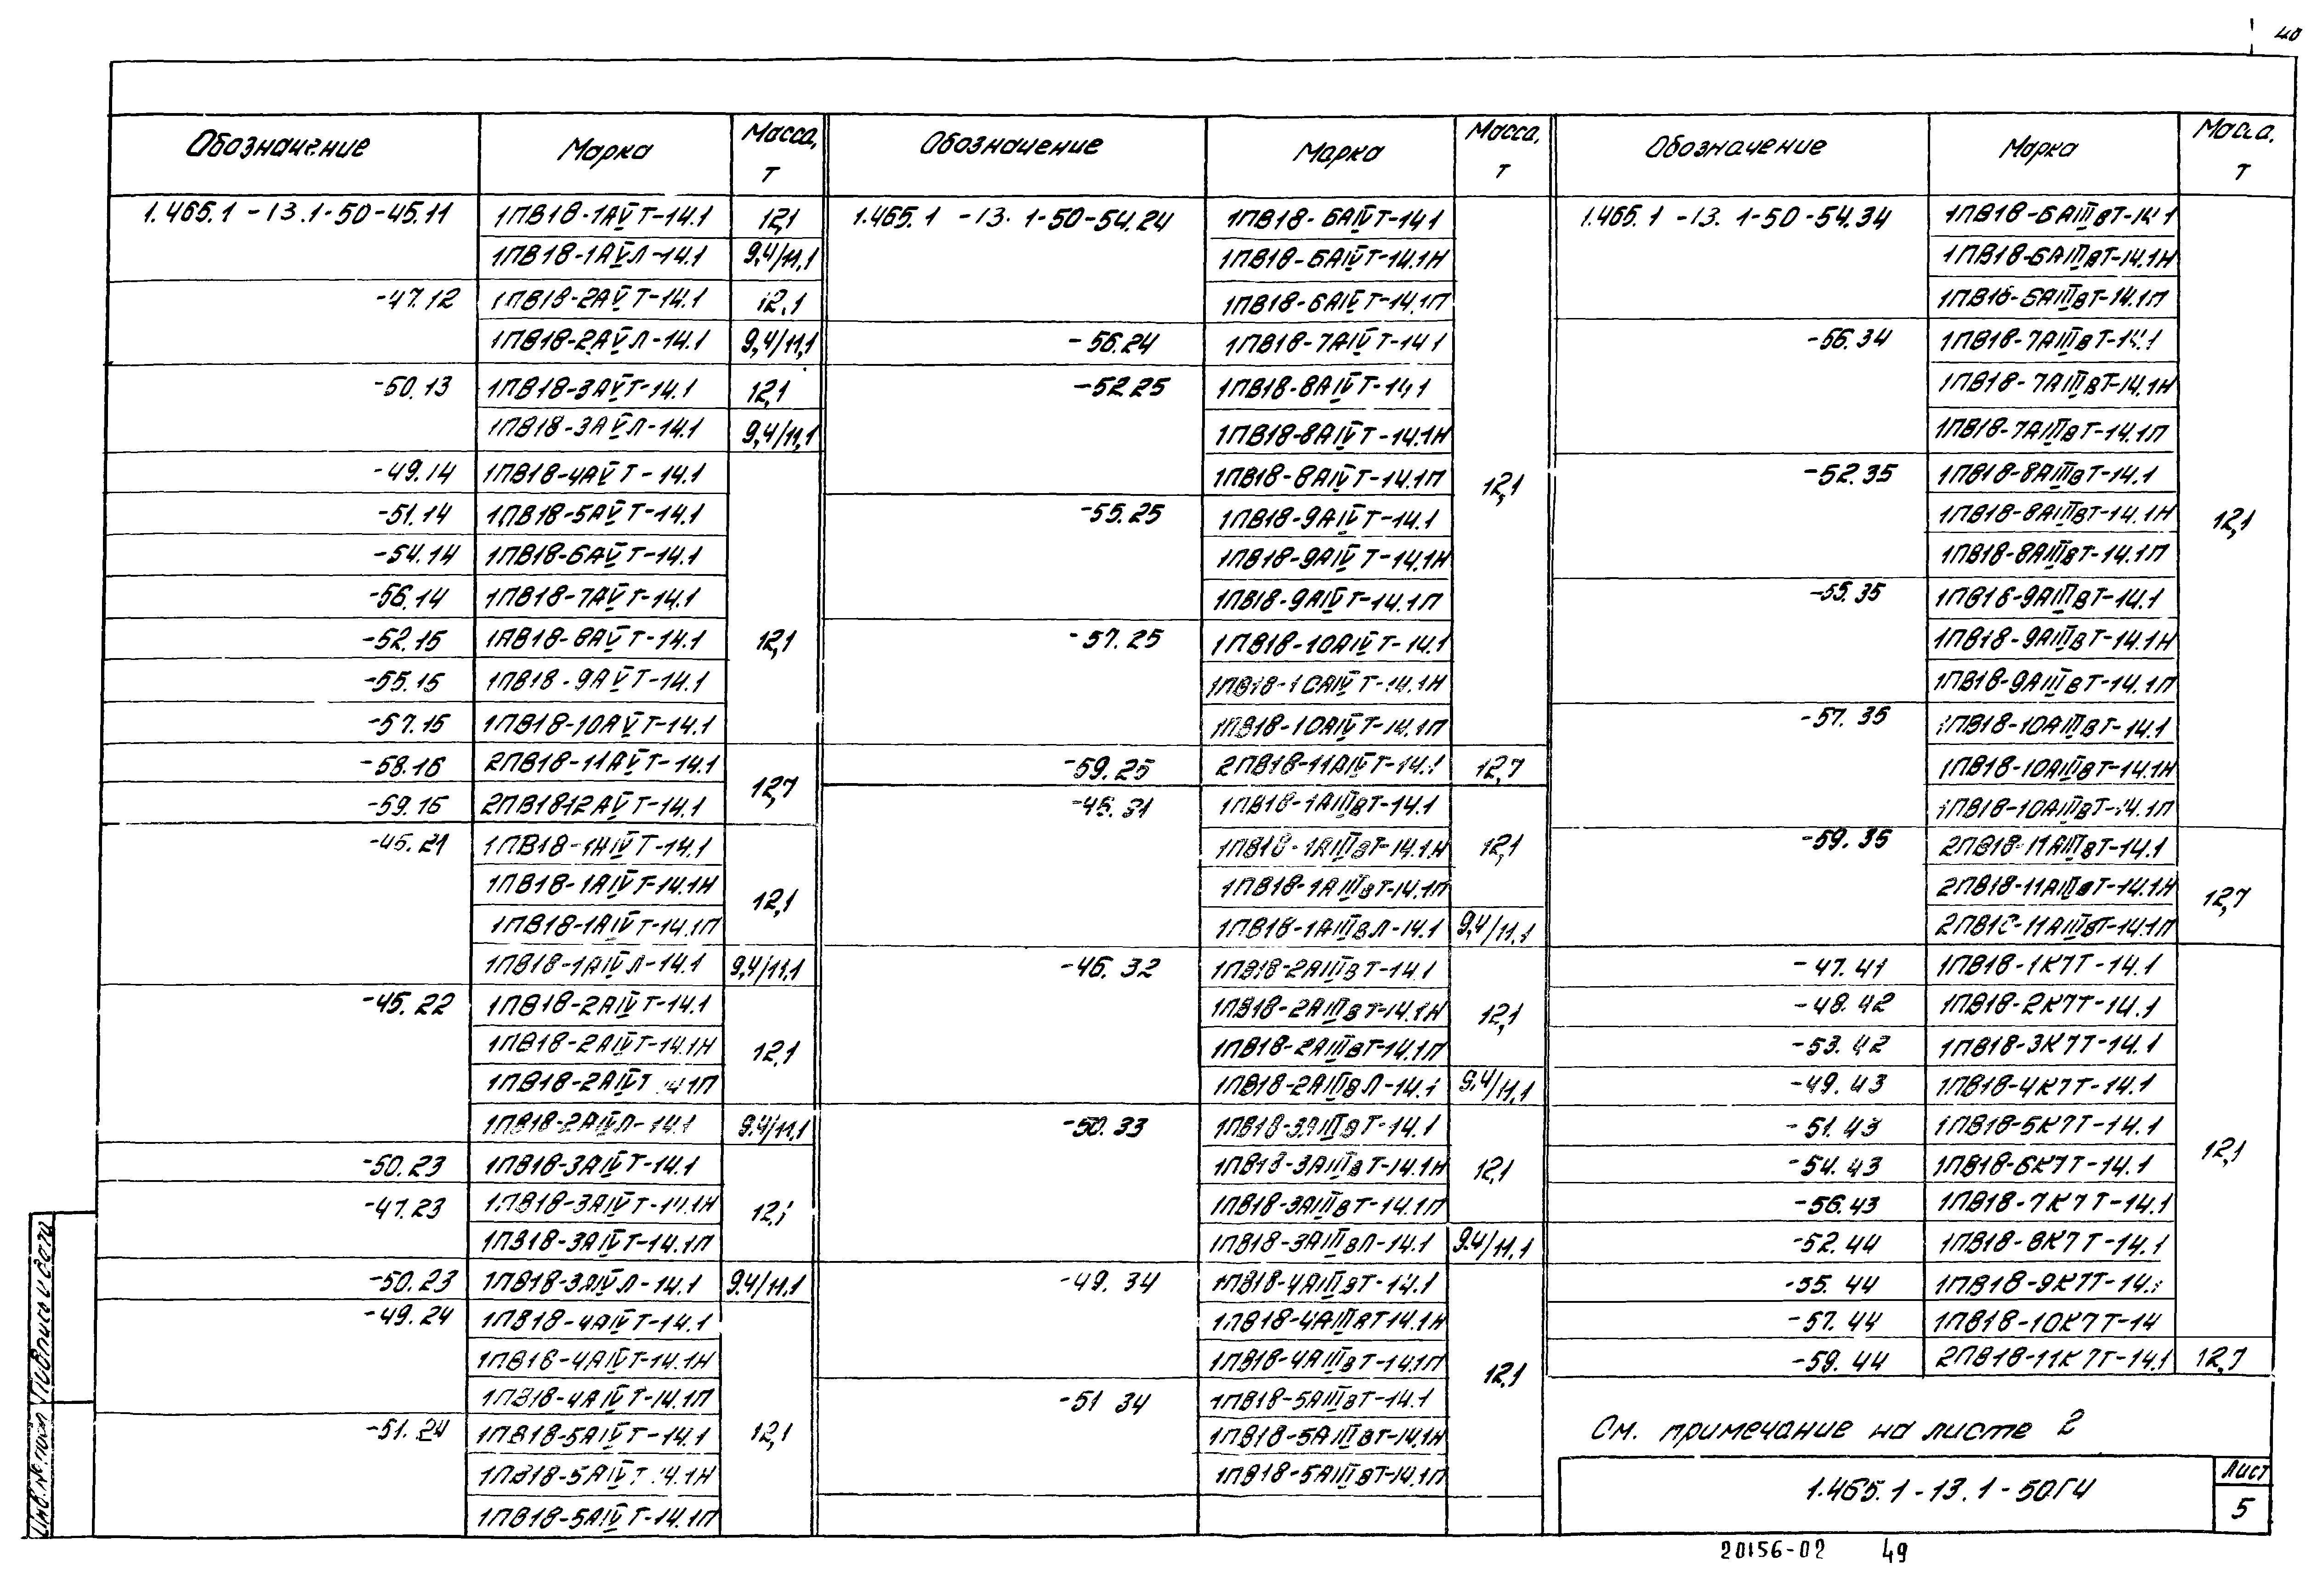 40
Обозначение Марка Масса, т
1.465.1-13.1-50-45.11 1ПВ18-1АⅤТ-14.1 12,1
1ПВ18-1АⅤЛ-14.1 9,4/11,1
-47.12 1ПВ18-2АⅤТ-14.1 12,1
1ПВ18-2АⅤЛ-14.1 9,4/11,1
-50.13 1ПВ18-3АⅤТ-14.1 12,1
1ПВ18-3АⅤЛ-14.1 9,4/11,1
-49.14 1ПВ18-4АⅤТ-14.1
-51.14 1ПВ18-5АⅤТ-14.1
-54.14 1ПВ18-6АⅤТ-14.1
-56.14 1ПВ18-7АⅤТ-14.1
-52.15 1ПВ18-8АⅤТ-14.1 12,1
-55.15 1ПВ18-9АⅤТ-14.1
-57.15 1ПВ18-10АⅤТ-14.1
-58.16 2ПВ18-11АⅤТ-14.1 12,7
-59.16 2ПВ1812АⅤТ-14.1
-45.21 1ПВ18-1АⅣТ-14.1
1ПВ18-1АⅣТ-14.1Н 12,1
1ПВ18-1АⅣТ-14.1П
1ПВ18-1АⅣЛ-14.1 9,4/11,1
-45.22 1ПВ18-2АⅣТ-14.1
1ПВ18-2АⅣТ-14.1Н 12,1
1ПВ18-2АⅣТ 14.1П
1ПВ18-2АⅣЛ-14.1 9.4/11,1
-50.23 1ПВ18-3АⅣТ-14.1
-47.23 1ПВ18-3АⅣТ-14.1Н 12,1
1ПВ18-3АⅣТ-14.1П
-50.23 1ПВ18-3АⅣЛ-14.1 9.4/11,1
-49.24 1ПВ18-4АⅣТ-14.1
1ПВ18-4АⅣТ-14.1Н
1ПВ18-4АⅣТ-14.1П
-51.24 1ПВ18-5АⅣТ-14.1 12,1
1ПВ18-5АⅣТ 14.1Н
1ПВ18-5АⅣТ-14.1П
Обозначение Марка Масса, т
1.465.1-13.1-50-54.24 1ПВ18-6АⅣТ-14,1
1ПВ18-6АⅣТ-14.1Н
1ПВ18-6АⅣТ-14.1П
-56.24 1ПВ18-7АⅣТ-14.1
-52.25 1ПВ18-8АⅣТ-14,1
1ПВ18-8АⅣТ-14.1Н
1ПВ18-8АⅣТ-14.1П 12,1
-55.25 1ПВ18-9АⅣТ-14.1
1ПВ18-9АⅣТ-14.1Н
1ПВ18-9АⅣТ-14.1П
-57.25 1ПВ18-10АⅣТ-14.1
1ПВ18-10АⅣТ-14.1Н
1ПВ18-10АⅣТ-14.1П
-59.25 2ПВ18-11АⅣТ-14.1 12,7
-45.31 1ПВ18-1АⅢвТ-14.1
1ПВ18-1АⅢвТ-14.1Н 12,1
1ПВ18-1АⅢвТ-14.1П
1ПВ18-1АⅢвЛ-14.1 9,4/11.1
-46.32 1ПВ18-2АⅢвТ-14.1
1ПВ18-2АⅢвТ-14.1Н 12,1
1ПВ18-2АⅢвТ-14.1П
1ПВ18-2АⅢвЛ-14.1 9.4/11,1
-50.33 1ПВ18-3АⅢвТ-14.1
1ПВ18-3АⅢвТ-14.1Н 12,1
1ПВ18-3АⅢвТ-14.1П
1ПВ18-3АⅢвЛ-14.1 9.4/11.1
-49.34 1ПВ18-4АⅢвТ-14.1
1ПВ18-4АⅢвТ14.1Н
1ПВ18-4АⅢвТ-14.1П 12,1
-51 34 1ПВ18-5АⅢвТ-14.1
1ПВ18-5АⅢвТ-14.1Н
1ПВ18-5АⅢвТ-14.1П
Обозначение Марка Масса, т
1.465.1-13.1-50-54.34 1ПВ18-6АⅢвТ-14.1
1ПВ18-6АⅢвТ-14.1Н
1ПВ18-6АⅢвТ-14.1П
-56.34 1ПВ18-7АⅢвТ-14.1
1ПВ18-7АⅢвТ-14.1Н
1ПВ18-7АⅢвТ-14.1П
-52.35 1ПВ18-8АⅢвТ-14.1
1ПВ18-8АⅢвТ-14.1Н 12,1
1ПВ18-8АⅢвТ-14.1П
-55.35 1ПВ18-9АⅢвТ-14.1
1ПВ18-9АⅢвТ-14.1Н
1ПВ18-9АⅢвТ-14.1П
-57.35 1ПВ18-10АⅢвТ-14.1
1ПВ18-10АⅢвТ-14.1Н
1ПВ18-10АⅢвТ-14.1П
-59.35 2ПВ18-11АⅢвТ-14.1
2ПВ18-11АⅢвТ-14.1Н 12,7
2ПВ18-11АⅢвТ-14.1П
-47.41 1ПВ18-1К7Т-14.1
-48.42 1ПВ18-2К7Т-14.1
-53.42 1ПВ18-3К7Т-14.1
-49.43 1ПВ18-4К7Т-14.1
-51.43 1ПВ18-5К7Т-14.1
-54.43 1ПВ18-6К7Т-14.1 12,1
-56.43 1ПВ18-7К7Т-14.1
-52.44 1ПВ18-8К7Т-14.1
-55.44 1ПВ18-9К7Т-14.1
-57.44 1ПВ18-10К7Т-14
-59.44 2ПВ18-11К7Т-14.1 12,7
См. примечание на листе 2
1.465.1-13.1-50ГЧ
Лист
5
Инв.№ подл. Подпись и дата
20156-02 49